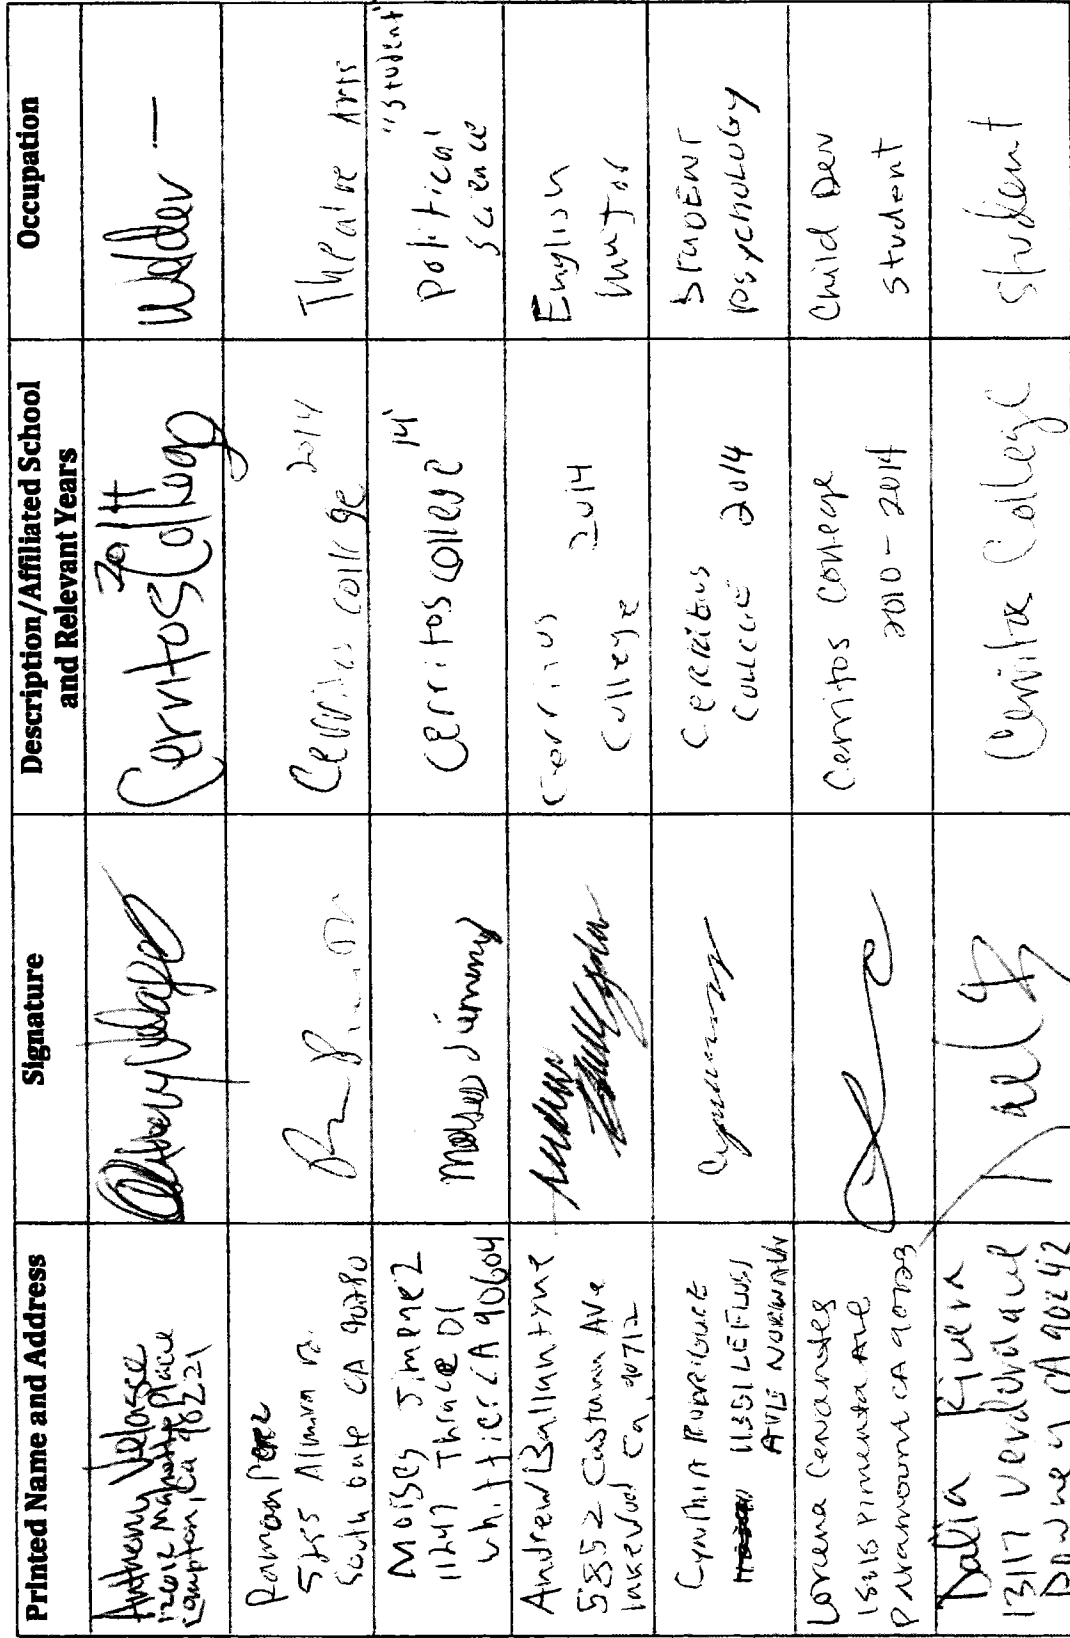 Printed Name and Address
Signature
Description/Affiliated School and Relevant Years
Occupation
Anthony
Place
Compton, Ca 90221
2014
Cerritos College
Welder —
Ramon Perez
South Gate CA 90280
Cerritos college 2014
Theatre Arts
Moises Jimenez
11247 Thrace Dr
Whittier CA 90604
Cerritos college 14'
"student"
political science
Andrew Ballantyne
5852 Castana Ave
Lakewood Ca, 90712
Cerritos College 2014
English major
Cynthia Rodriguez
11351 LEFLOSS
AVE NORWALK
Cerritos College 2014
STUDENT
Psychology
Lorena Cervantes
Pimenta Ave
Paramount CA 90723
Cerritos College
2010 - 2014
Child Dev
student
Dalia Rivera
13117
Downey CA 90242
Cerritos College
student